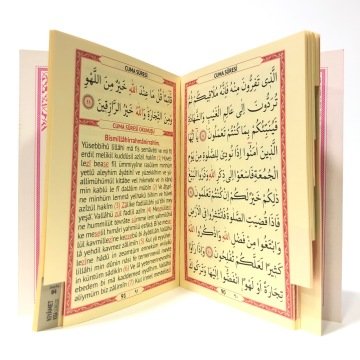 CUMA SÛRESİ
الَّذ۪ي تَفِرُّونَ مِنْهُ فَاِنَّهُ مُلَاق۪يكُمْ ثُمَّ
تُرَدُّونَ اِلٰى عَالِمِ الْغَيْبِ وَالشَّهَادَةِ
فَيُنَبِّئُكُمْ بِمَا كُنْتُمْ تَعْمَلُونَ ﴿٨﴾ يَٓا اَيُّهَا
الَّذ۪ينَ اٰمَنُٓوا اِذَا نُودِيَ لِلصَّلٰوةِ مِنْ يَوْمِ
الْجُمُعَةِ فَاسْعَوْا اِلٰى ذِكْرِ اللّٰهِ وَذَرُوا الْبَيْعَ
ذٰلِكُمْ خَيْرٌ لَكُمْ اِنْ كُنْتُمْ تَعْلَمُونَ ﴿٩﴾
فَاِذَا قُضِيَتِ الصَّلٰوةُ فَانْتَشِرُوا فِي الْاَرْضِ
وَابْتَغُوا مِنْ فَضْلِ اللّٰهِ وَاذْكُرُوا اللّٰهَ
كَث۪يرًا لَعَلَّكُمْ تُفْلِحُونَ ﴿١٠﴾ وَاِذَا رَاَوْا
تِجَارَةً اَوْ لَهْوًا انْفَضُّٓوا اِلَيْهَا وَتَرَكُوكَ
CUMA SÛRESİ
قَٓائِمًا قُلْ مَا عِنْدَ اللّٰهِ خَيْرٌ مِنَ اللَّهْوِ
وَمِنَ التِّجَارَةِ وَاللّٰهُ خَيْرُ الرَّازِق۪ينَ ﴿١١﴾
CUMA SÛRESİ OKUNUŞU
Bismillâhirrahmânirrahîm.
Yüsebbihü lillâhi mâ fis semâvâti ve mâ fil
erdil melikil kuddûsil azîzil hakîm (1) Hüvel
lezî bease fil ümmiyyîne rasûlen minhüm
yetlû aleyhim âyâtihî ve yüzekkîhim ve yü-
allimühümül kitâbe vel hıkmeh ve in kânû
min kablü le fî dalâlim mübîn (2) Ve âharî-
ne minhüm lemmâ yelhakû bihim ve hüvel
azîzül hakîm (3) Zâlike fadlüllâhi yü'tîhi mey
yeşâ' vallâhü zül fadlil azîm (4) Meselüllezî-
ne hummilüt tevrâte sümme lem yahmilûhâ
ke meselil hımâri yahmilü esfârâ bi'se mese-
lül kavmillezîne kezzebû bi âyâtillâh vallâhü
lâ yehdil kavmez zâlimîn (5) Kul yâ eyyühel-
lezîne hâdû in zeamtüm enneküm evliyâü
lillâhi min dûnin nâsi fe temennevül mevte
in küntüm sâdikîn (6) Ve lâ yetemennevnehû
ebeden bi mâ kaddemet eydîhim vallâhü
alîymüm biz zâlimîn (7) Kul innel mevtel
95
KIYAMET